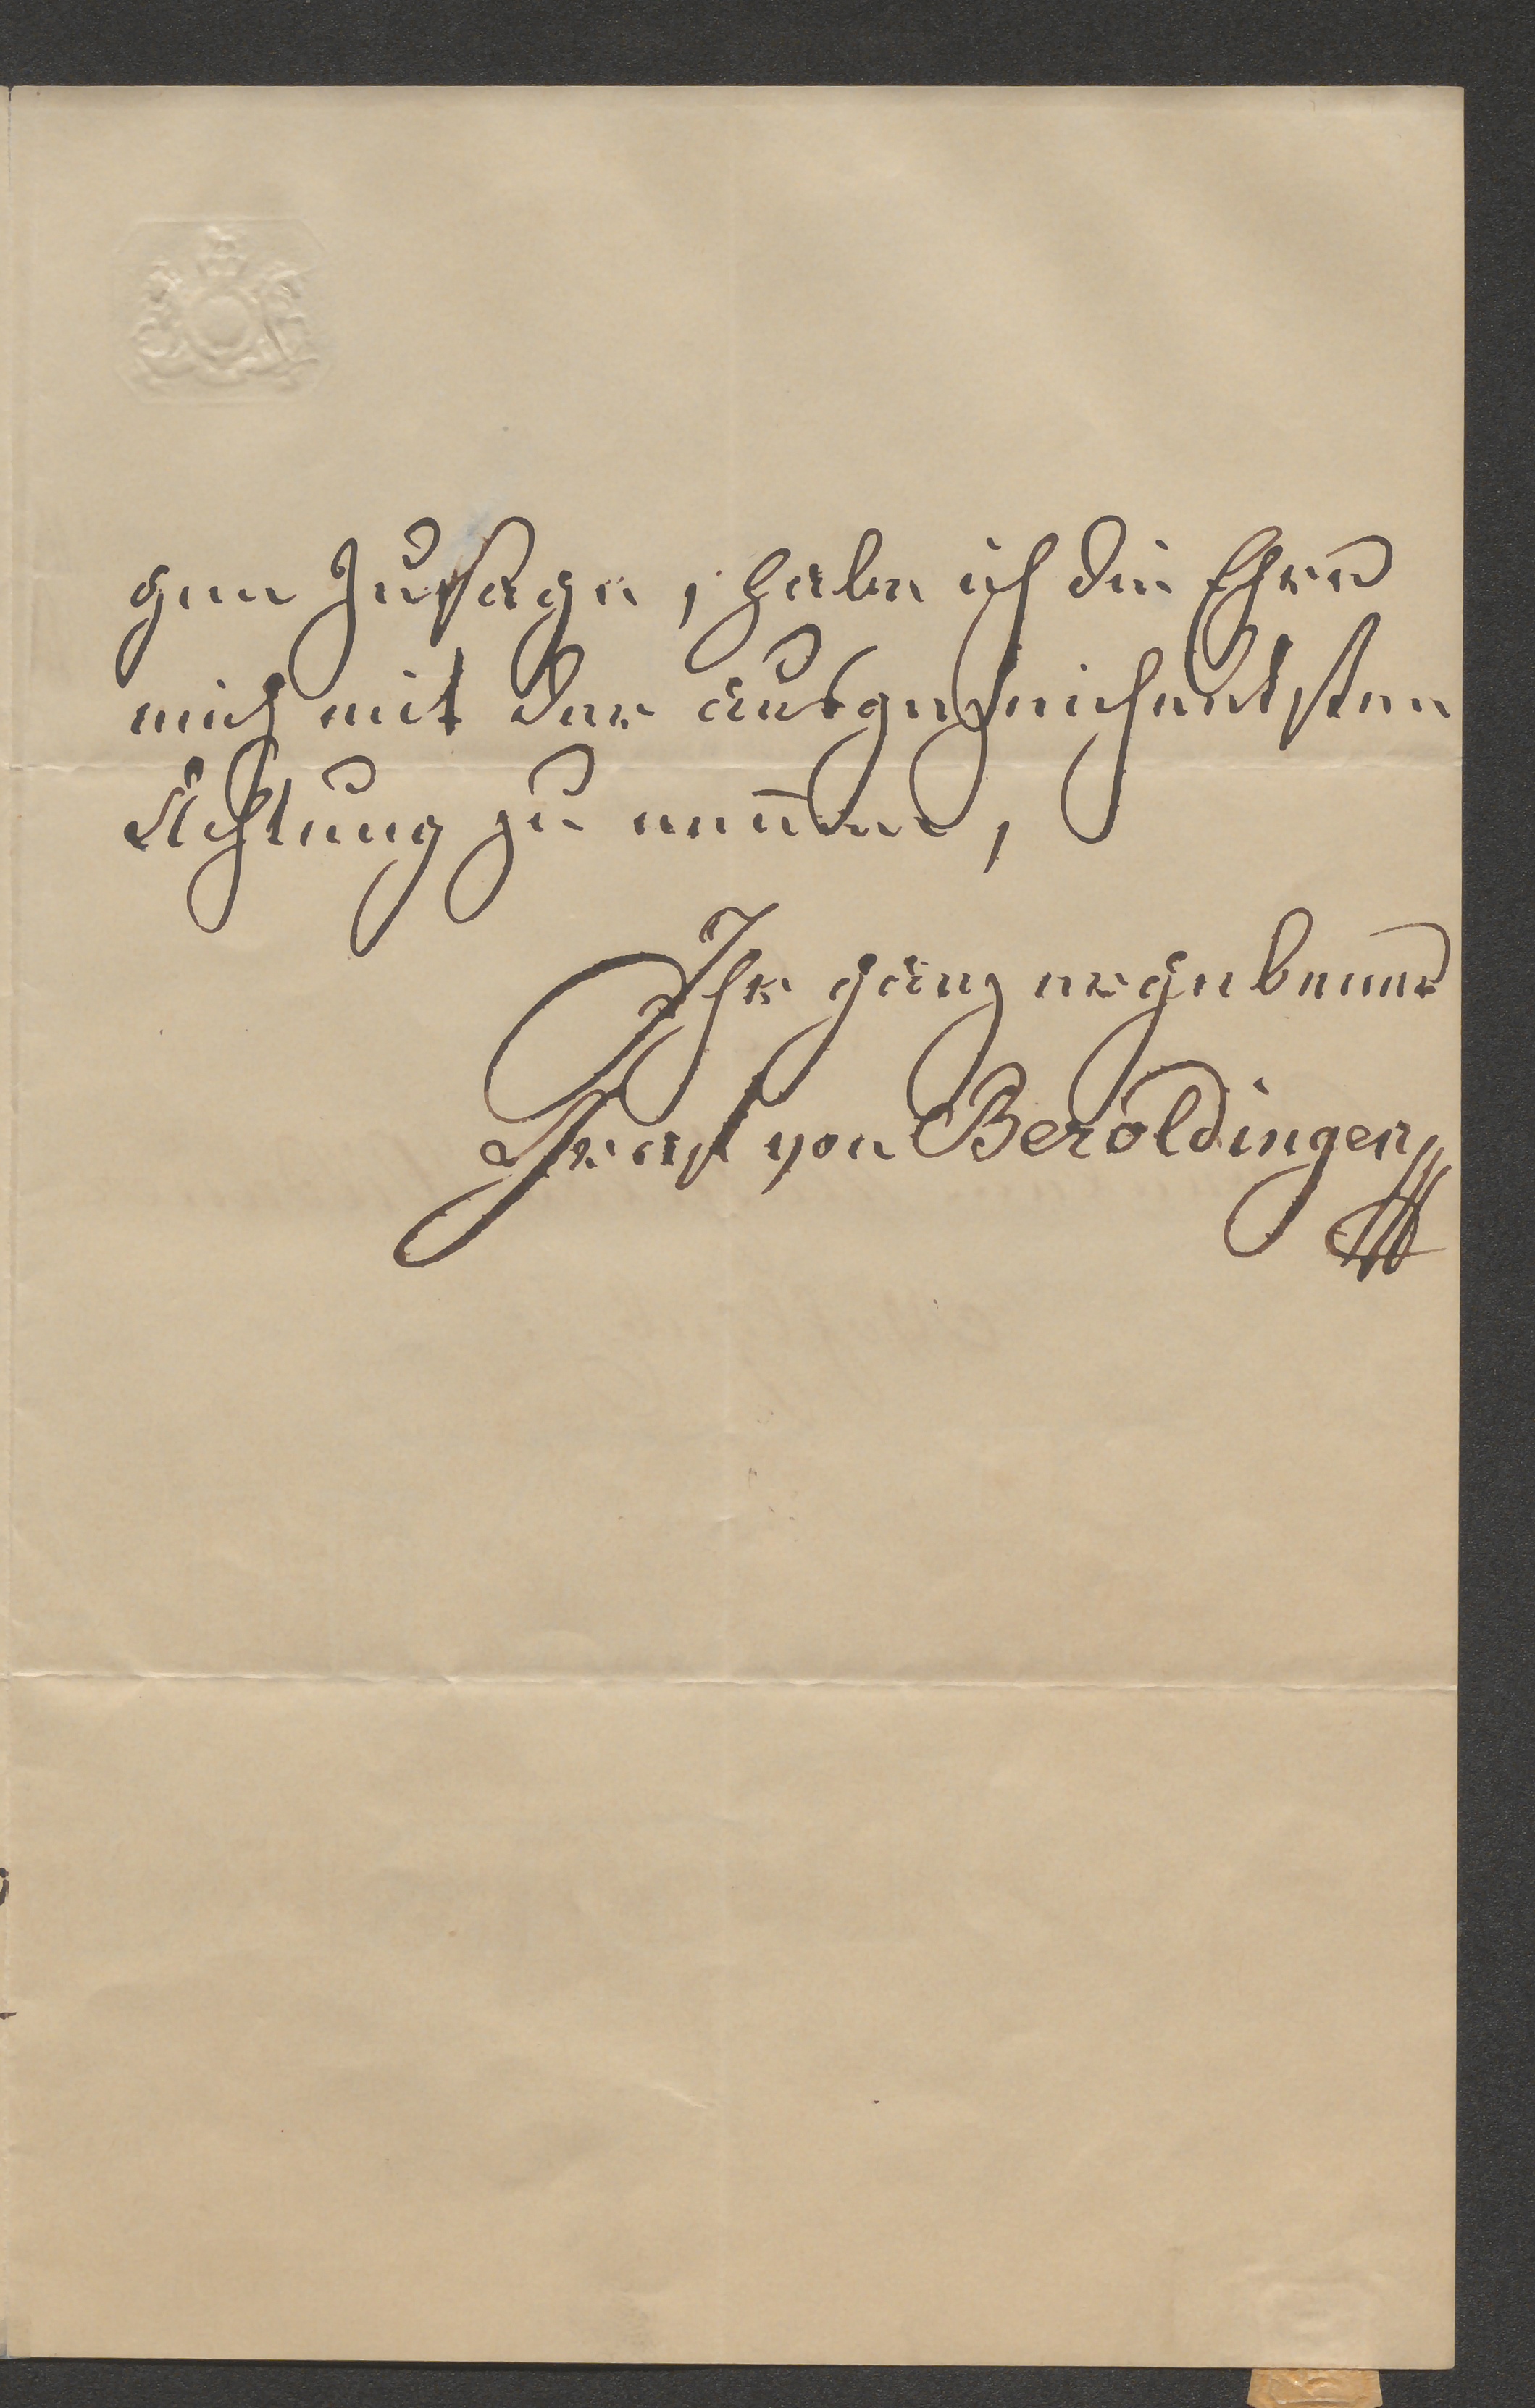 gen Zusage, habe ich die Ehre
mich mit der ausgezeichnetsten
Achtung zu nennen,
Ihr ganz ergebener
Graf von Beroldingen